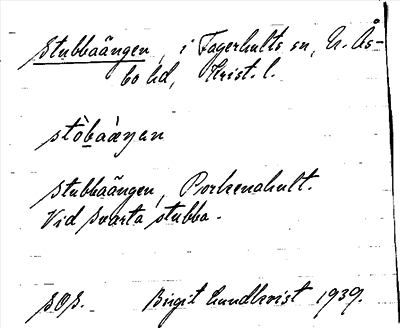 Stubbaängen, i Fagerhults sn, N. Ås-
bo hd, Krist. l.
stòbaàŋen
Stubbaängen, Porkenahult.
Vid svarta stubba.
SOS. Birgit Lundkvist 1939.